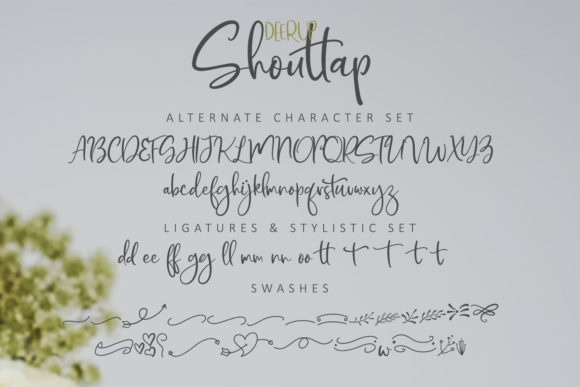 DEERUP
Shouttap
ALTERNATE CHARACTER SET
ABCDEFGHIJKLMNOPQRSTUVWXYZ
abcdefghijklmnopqrstuvwxyz
LIGATURES & STYLISTIC SET
dd ee ff gg ll mm nn oo tt t t t t
SWASHES
w